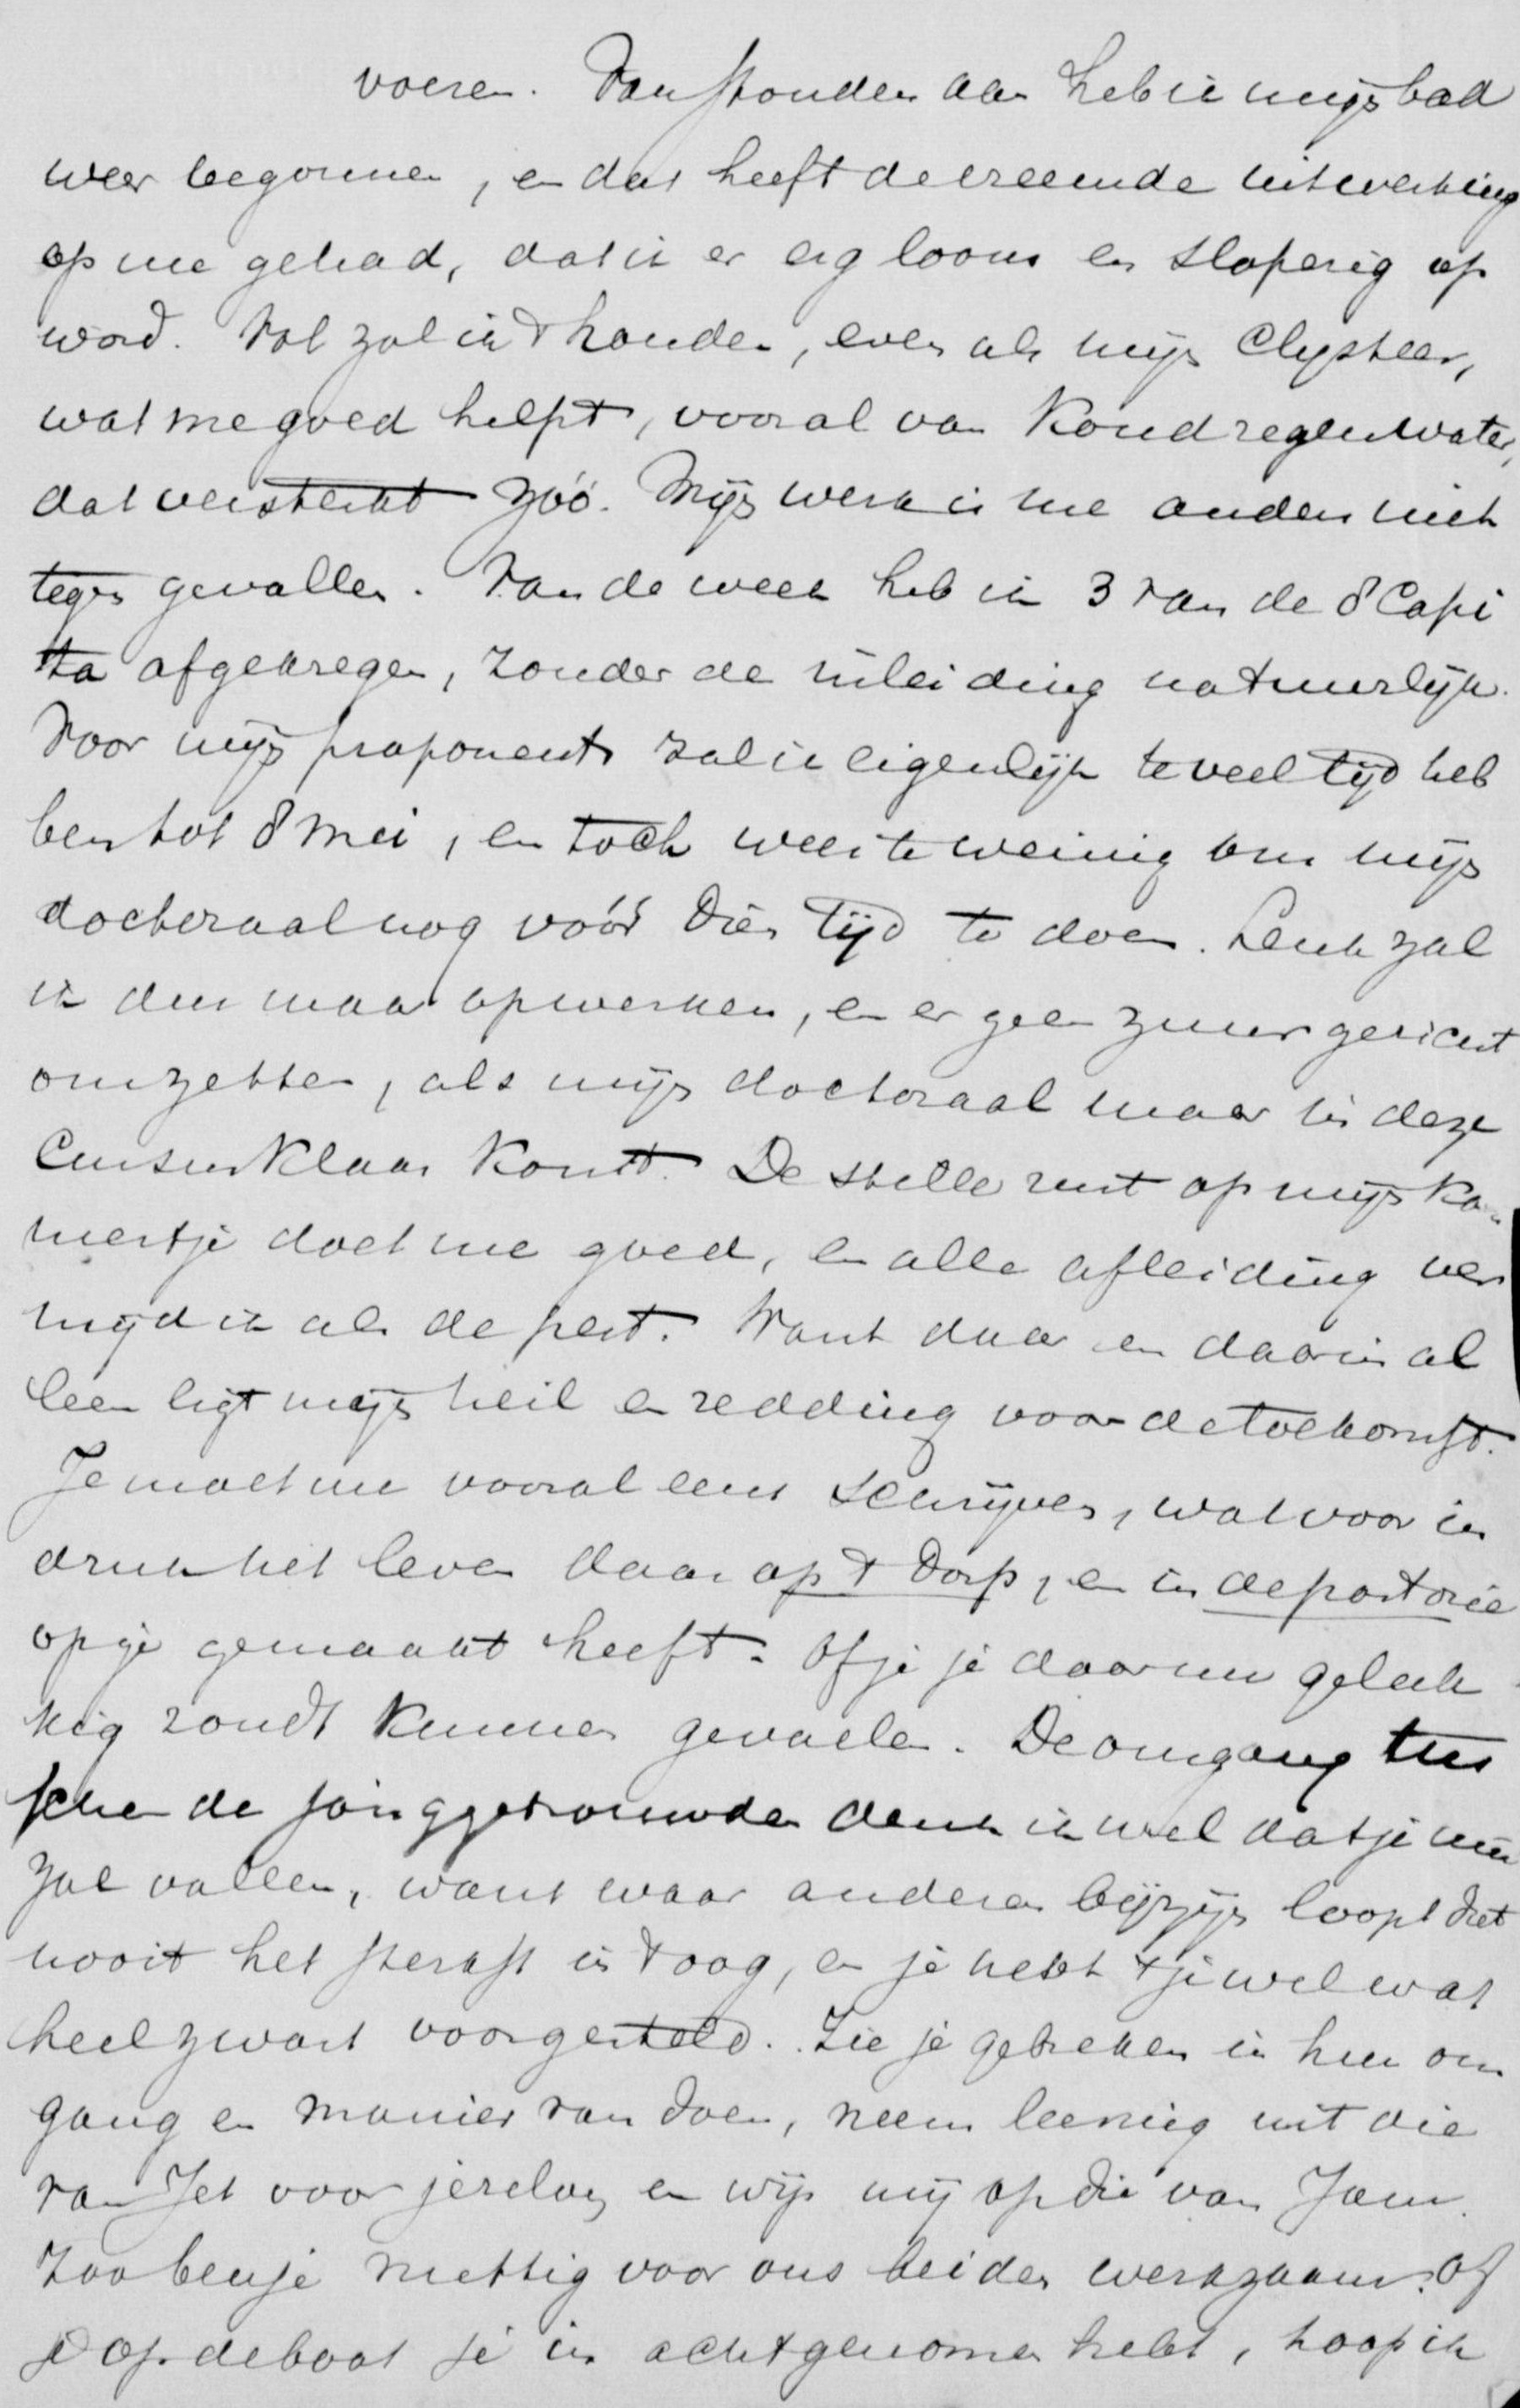 voeren. Van stonden aan heb ik mijn bad
weer begonnen, en dat heeft de vreemde uitwerking
op me gehad, dat ik er erg loom en slaperig op
word. Vol zal ik 't houden, even als mijn Clysteer,
wat me goed helpt, vooral van Koud regenwater,
dat versterkt zóó. Mijn werk is me anders niet
tegen gevallen. Van de week heb ik 3 van de 8 Capi
ta afgekregen, zonder de inleiding natuurlijk.
Voor mijn proponents zal ik eigenlijk te veel tijd heb
ben tot 8 Mei, en toch weer te weinig om mijn
doctoraal nog vóór dien tijd te doen. Leuk zal
ik dus maar opwerken, en er geen zuur gezicht
om zetten, als mijn doctoraal maar in deze
Cursus Klaar Komt. De stille rust op mijn Ka
mertje doet me goed, en alle afleiding ver
mijd ik als de pest. Want daar en daarin al
leen ligt mijn heil en redding voor de toekomst.
Je moet me vooral eens schrijven, wat voor in
druk het leven daar op 't Dorp, en in de pastorie
op je gemaakt heeft. Of je je daar nu geluk
kig zoudt Kunnen gevoelen. De omgang tus
schen de jonggetrouwden denk ik wel dat je mee
zal vallen, want waar anderen bij zijn loopt dat
nooit het sterkst in 't oog, en je hebt 't je wel wat
heel zwart voorgesteld. Zie je gebreken in hun om
gang en manier van doen, neem leering uit die
van Jet voor jezelven en wijs mij op die van Jam.
Zoo ben je nuttig voor ons beiden werkzaam. Of
je op de boot je in acht genomen hebt, hoop ik